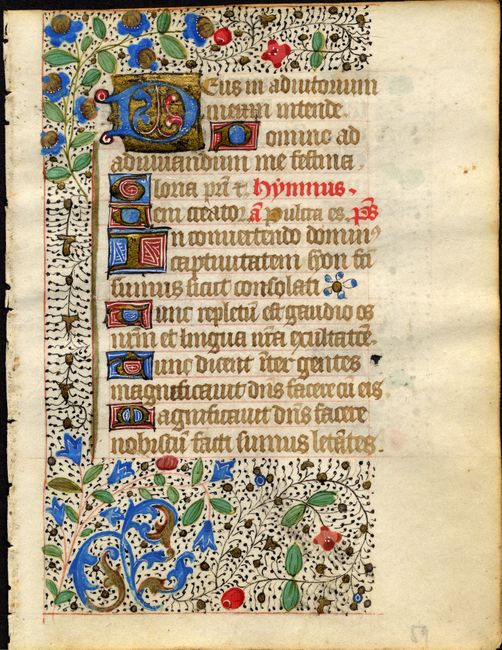 Deus in adiutorium
meum intende.
Domine ad
adiuuandum me festina
Gloria pri et. hymnus.
Mem creator añ Pulcra es. ps
In conuertendo dominꝰ
captiuitatem syon fti
sumus sicut consolati
Tunc repletū est gaudio os
nrm et lingua nra exultatōe.
Tunc dicent inter gentes
magnificauit dns facere cū eis
Magnificauit dns facere
nobiscū facti sumus letātes.